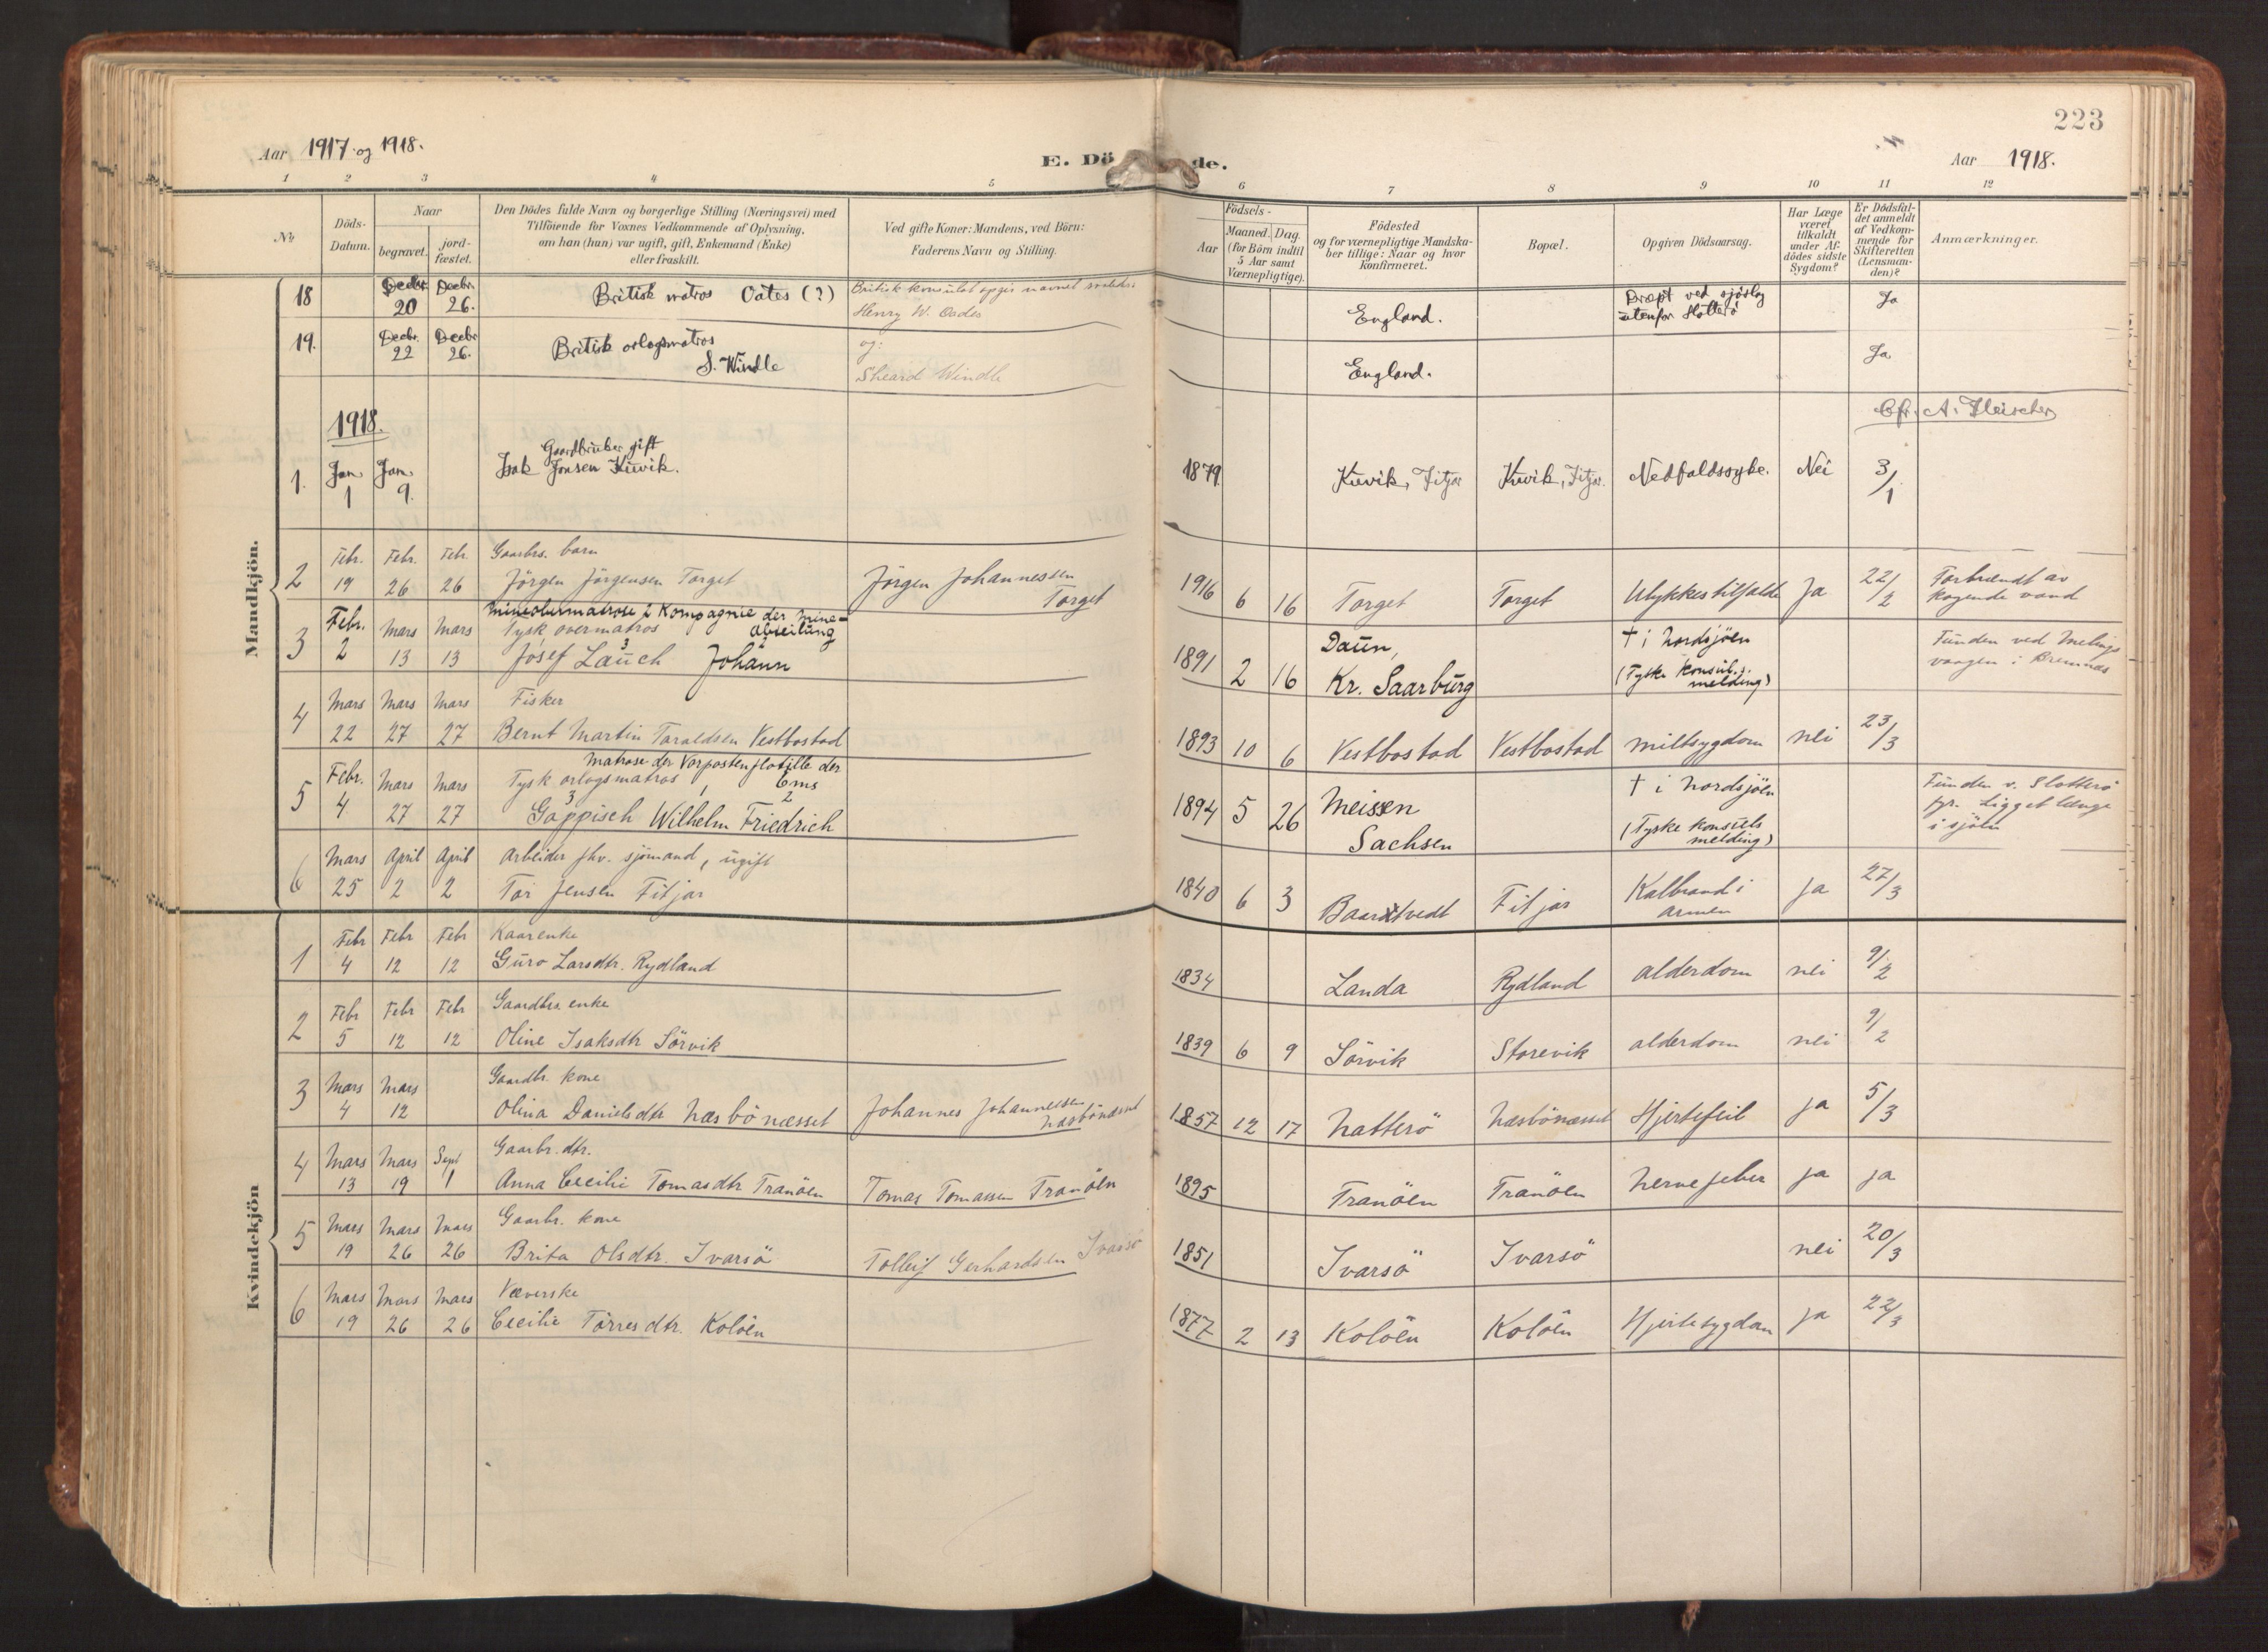 223
Aar 1917 og 1918.
E. Dö de.
Aar 1918.
1 2 3 4 5 6 7 8 9 10 11 12
No
Döds-Datum.
Naar
begravet.
jord-fæstet.
Den Dödes fulde Navn og borgerlige Stilling (Næringsvei) med
Tilföiende for Voxnes Vedkommende af Oplysning,
om han (hun) var ugift, gift, Enkemand (Enke)
eller fraskilt.
Ved gifte Koner: Mandens, ved Börn:
Faderens Navn og Stilling.
Födsels-
Aar
Maaned.
Dag.
(for Börn indtil
5 Aar samt
Værnepligtige).
Födested
og for værnepligtige Mandska-
ber tillige: Naar og hvor
konfirmeret.
Bopæl.
Opgiven Dödsaarsag.
Har Læge
været
tilkaldt
under Af-
dödes sidste
Sygdom?
Er Dödsfal-
det anmeldt
af Vedkom-
mende for
Skifteretten
(Lensman-
den)?
Anmærkninger.
Mandkjön.
18 Decbr. 20 Decbr. 26. Britisk matros Oates (?) Britisk konsulat opgir navnet
Henry W. Oades England. Dræpt ved sjöslag
utenfor Slotterö Ja
19. Decbr. 22 Decbr. 26. Britisk orlogsmatros
S. Windle og:
Sheard Windle England. Ja
Cfr. A. Fleischer
1918.
1. Jan. 1 Jan. 9. Gaardbruker, gift
Isak Jonsen Kuvik. 1879 Kuvik, Fitjar Kuvik, Fitjar. Nedfaldssyke. Nei 3/1
2 Febr. 19 Febr. 26 Febr. 26 Gaarbrs. barn
Jörgen Jörgensen Torget Jörgen Johannessen
Torget 1916 6 16 Torget Torget Ulykkestilfælde Ja 22/2 Forbrændt av
kogende vand
3 Febr. 2 Mars 13 Mars 13 Mineobermatrose 2 Kompagnie der Mine-
abteilung
Tysk overmatros
Josef Lauch Johann 1891 2 16 Daun,
Kr. Saarburg † i Nordsjöen
(Tyske konsuls
melding) Funden ved Melings
vaagen i Bremnes
4 Mars 22 Mars 27 Mars 27 Fisker
Bernt Martin Taraldsen Vestbostad 1893 10 6 Vestbostad Vestbostad miltsygdom nei 23/3
5 Febr. 4 Mars 27 Mars 27 Matrose der Vorpostenflotille der
Ems
Tysk orlogsmatros
3 1 2
Gappisch Wilhelm Friedrich 1894 5 26 Meissen
Sachsen † i Nordsjöen
(Tyske konsuls
melding) Funden v. Slotterö
fyr. Ligget længe
i sjöen
6 Mars 25 April 2 April 2 Arbeider fhv. sjömand, ugift
Tor Jensen Fitjar 1840 6 3 Baardtvedt Fitjar Kalbrand i
armen ja 27/3
Kvindekjön
1 Febr 4 Febr 12 Febr 12 Kaarenke
Guro Larsdtr. Rydland 1834 Landa Rydland alderdom nei 9/2
2 Febr 5 Febr 12 Febr 12 Gaardbrs. enke
Oline Isaksdtr Sörvik 1839 6 9 Sörvik Storevik alderdom nei 9/2
3 Mars 4 Mars 12 Gaardbr. kone
Olina Danielsdtr Næsbönesset Johannes Johannessen
Næsbönesset 1857 12 17 Natterö Næsbönesset Hjertefeil ja 5/3
4 Mars 13 Mars 19 Sept 1 Gaarbr. dtr.
Anna Cecilie Tomasdtr Tranöen Tomas Tomassen Tranöen 1895 Tranöen Tranöen Nervefeber ja ja
5 Mars 19 Mars 26 Mars 26 Gaarbr. kone
Brita Olsdtr. Ivarsö Tolleif Gerhardsen Ivarsö 1851 Ivarsö Ivarsö nei 20/3
6 Mars 19 Mars 26 Mars 26 Væverske
Cecilie Törresdtr. Kolöen 1877 2 13 Kolöen Kolöen Hjertesygdom ja 22/3